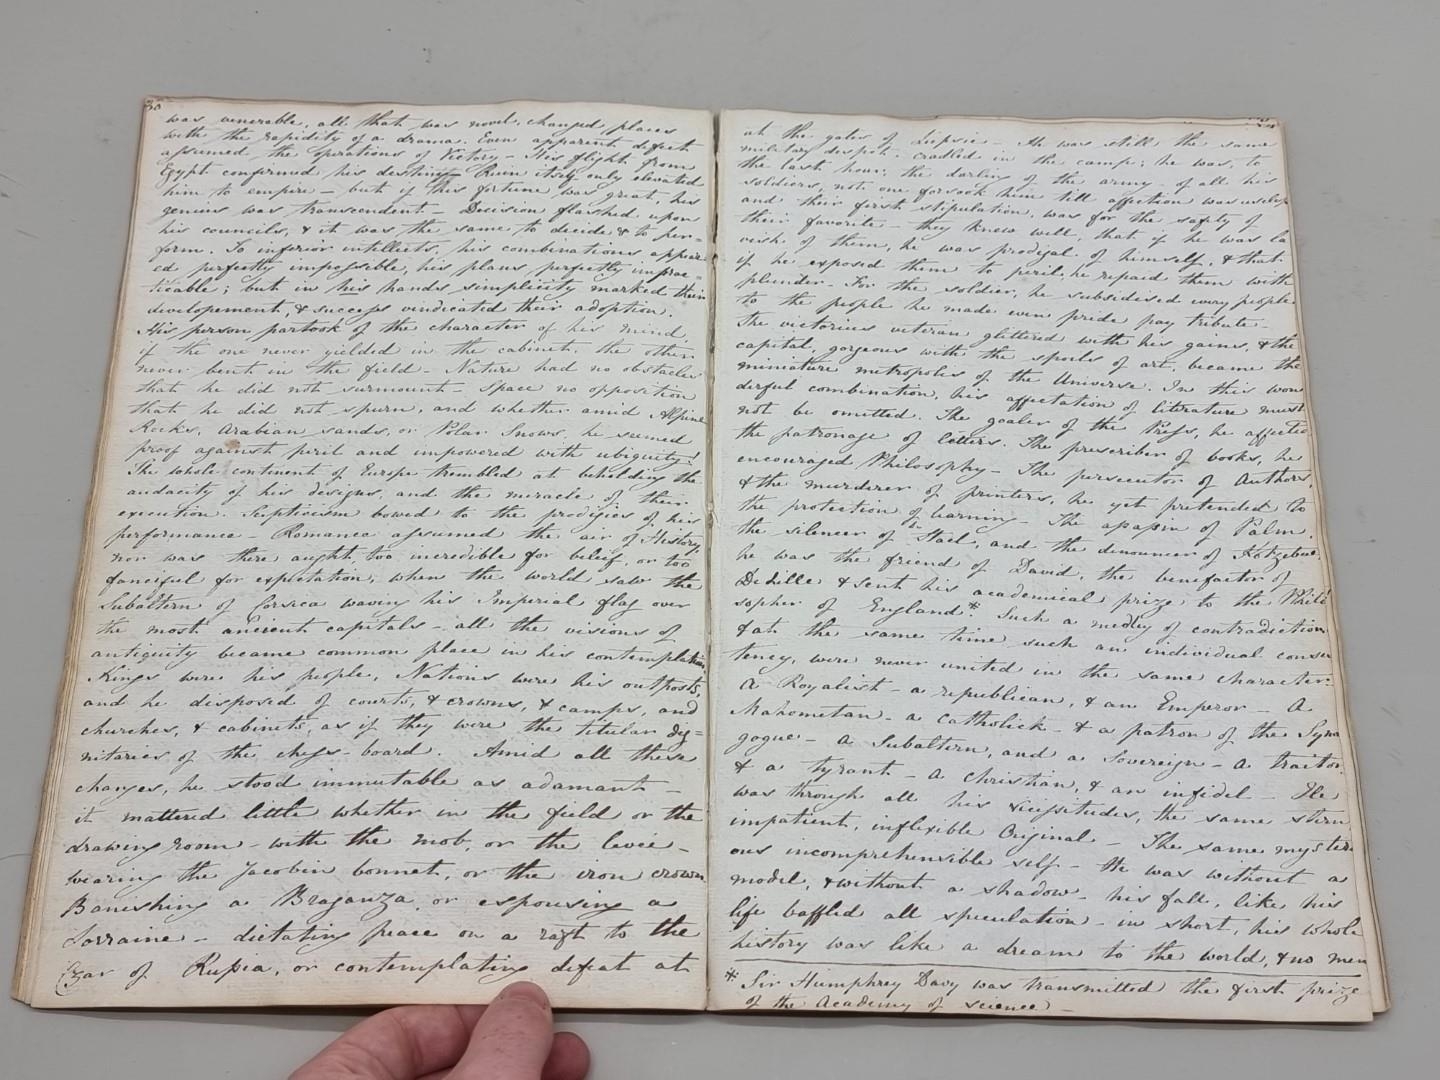 30
was venerable, all that was novel, changed places
with the rapidity of a drama. Even apparent defeat
assumed the operations of Victory – His flight from
Egypt confirmed his destiny – Ruin itself only elevated
him to empire – but if this fortune was great, his
genius was transcendent – Decision flashed upon
his councils, & it was the same to decide & to per=
form. To inferior intellects, his combinations appear
ed perfectly impossible, his plans perfectly imprac=
ticable; but in his hands simplicity marked their
developement, & success vindicated their adoption.
His person partook of the character of his mind,
if the one never yielded in the cabinet, the other
never bent in the field – Nature had no obstacles
that he did not surmount – Space no opposition
that he did not spurn, and whether amid Alpine
Rocks, Arabian sands, or Polar Snows, he seemed
proof against peril and empowered with ubiquity!
The whole continent of Europe trembled at beholding the
audacity of his designs, and the miracle of their
execution. Scepticism bowed to the prodigies of his
performance – Romance assumed the air of History,
nor was there aught too incredible for belief, or too
fanciful for expectation, when the world saw the
Subaltern of Corsica waving his Imperial flag over
the most ancient capitals – all the visions of
antiquity became common place in his contemplation.
Kings were his people, Nations were his outposts,
and he disposed of courts, & crowns, & camps, and
churches, & cabinets, as if they were the titular dig=
nitaries of the chess-board. Amid all these
changes, he stood immutable as adamant –
it mattered little whether in the field or the
drawing room – with the mob, or the levée –
wearing the Jacobin bonnet, or the iron crown
Banishing a Braganza, or espousing a
Lorraine – dictating peace on a raft to the
Czar of Russia, or contemplating defeat at
at the gates of Leipsic – He was still the same
military despot. Cradled in the camp; he was, to
the last hour, the darling of the army – of all his
soldiers, not one forsook him till affection was useless
and their first stipulation, was for the safety of
their favorite – they knew well, that if he was la
vish of them, he was prodigal of himself, & that
if he exposed them to peril, he repaid them with
plunder – For the soldier, he subsidised every people
to the people he made even pride pay tribute –
The victorious veteran glittered with his gains, & the
capital, gorgeous with the spoils of art, became the
miniature metropolis of the Universe. In this won
derful combination, his affectation of literature must
not be omitted. The goaler of the Press, he affected
the patronage of letters. The prescriber of books, he
encouraged Philosophy – The persecutor of Authors
& the murderer of printers, he yet pretended to
the protection of learning – The assassin of Palm,
the silencer of De Stael, and the denouncer of Kotzebue,
he was the friend of David, the benefactor of
De Lille & sent his academical prize to the Philo
sopher of England* Such a medley of contradiction
& at the same time such an individual consis
tency, were never united in the same character.
A Royalist – a republican, & an Emperor – A
Mahometan – a catholick – & a patron of the Syna
gogue – a Subaltern, and a Sovereign – a traitor
& a tyrant – a Christian, & an infidel – He
was through all his vicissitudes, the same stern
impatient, inflexible Original – The same mysteri
ous incomprehensible self – He was without a
model, & without a shadow – his fall, like his
life baffled all speculation – in short, his whole
history was like a dream to the world, & no man
* Sir Humphrey Davy was transmitted the first prize
of the Academy of science –